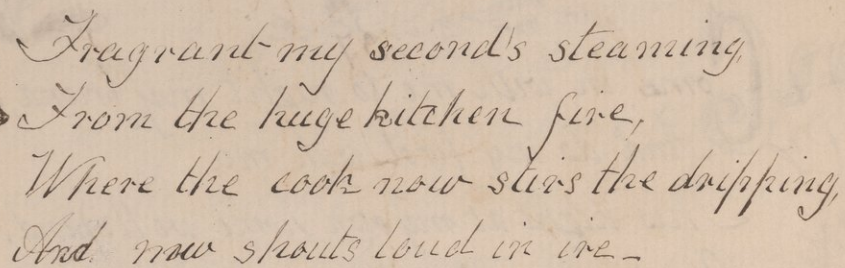 Fragrant my second's steaming,
From the huge kitchen fire,
Where the cook now stirs the dripping,
And now shouts loud in ire_